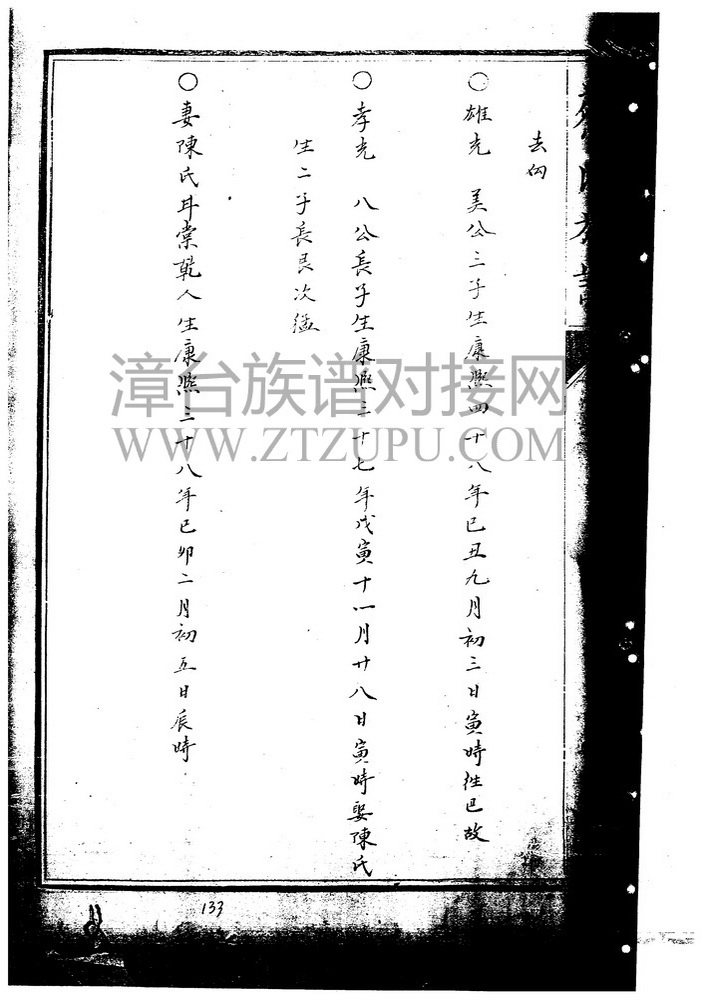 去㐰
○雄光 美公三子生康熙四十八年已丑九月初三日寅時往已故
○孝光 八公長子生康熙三十七年戊寅十一月廿八日寅時娶陳氏
生二子長艮次猛
○妻陳氏 人生康熙三十八年已卯二月初五日辰時
漳台族谱对接网
WWW.ZTZUPU.COM
133